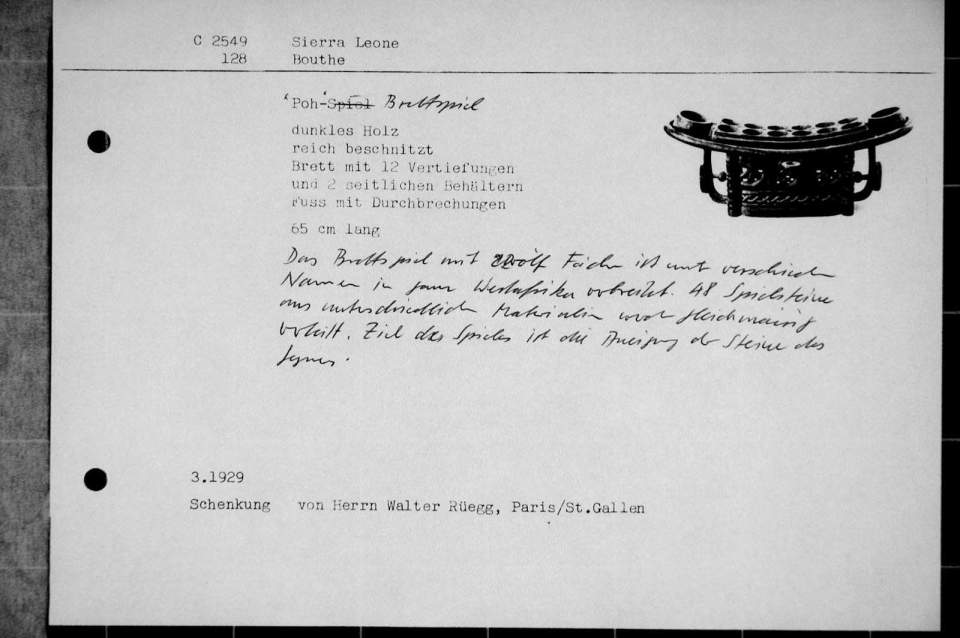 C 2549 Sierra Leone
128 Bouthe
'Poh'-Spiel Brettspiel
dunkles Holz
reich beschnitzt
Brett mit 12 Vertiefungen
und 2 seitlichen Behältern
Fuss mit Durchbrechungen
65 cm lang
Das Brettspiel mit zwölf Fächern ist unter verschieden
Namen in ganz Westafrika verbreitet. 48 Spielsteine
aus unterschiedlichen Materialien werden gleichmässig
verteilt. Ziel des Spieles ist die Aneignung der Steine des
Gegners.
3.1929
Schenkung von Herrn Walter Rüegg, Paris/St.Gallen